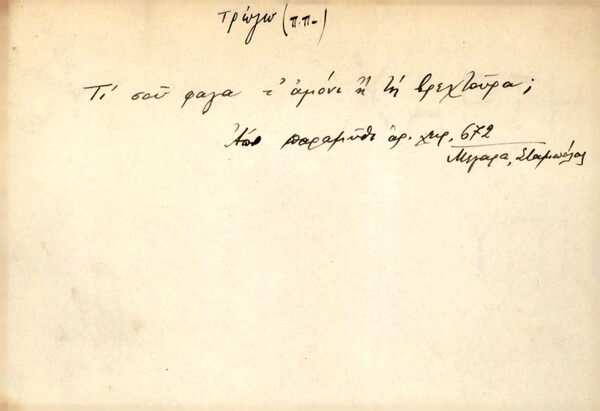 τρώγω (π.π.-)
Τί σοῦ φαγα τ' ἀμόνι ἢ τή βρεχτοῦρα;
Ἀπό παραμύθι ἀρ. χειρ. 672
Μέγαρα,